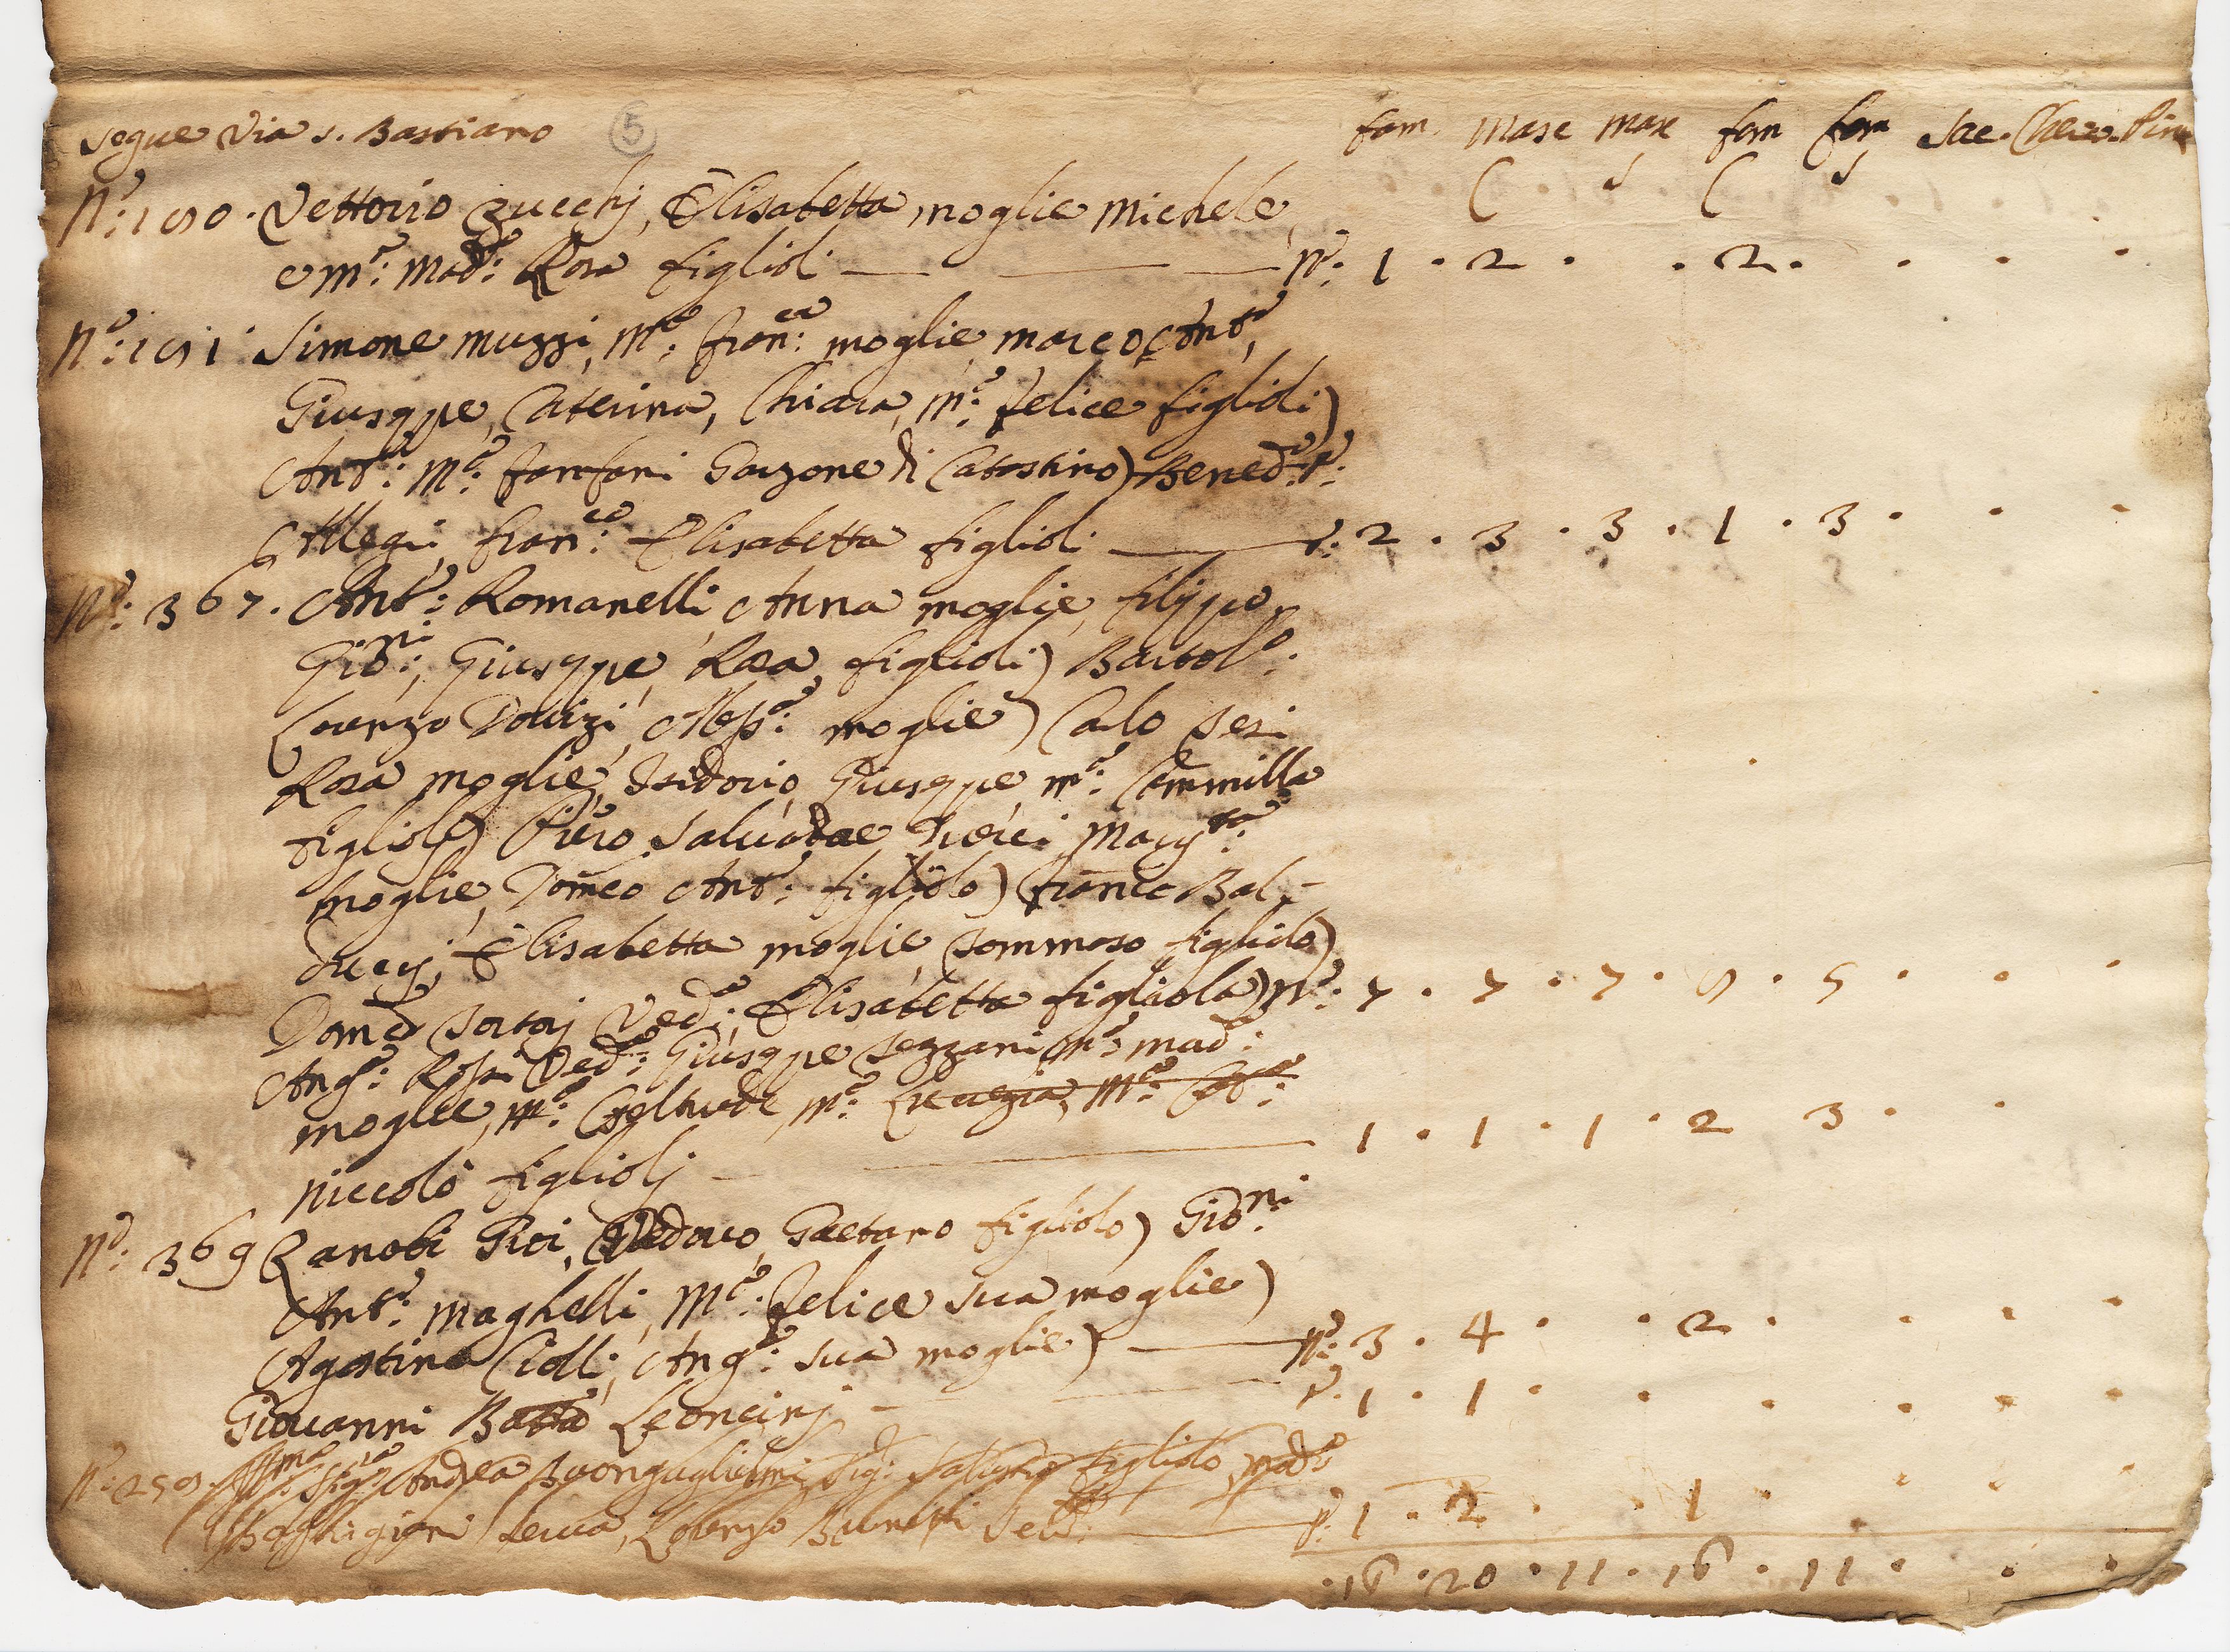 segue Via s. Bastiano 5 fam. Masc Masc fem fem Sac. Cher.
C s C s
N.o: 190. Vettorio Zucchj, Elisabetta moglie Michele,
e M.a: Mad.a: Rosa figlioli — N.o: 1 . 2 . . 2 . . . .
N.o: 191 Simone Muzzi, M.a: Fran:ca moglie, Marco Ant.o,
Giuseppe, Caterina, Chiara, M.a: Felice figlioli)
Ant.o: M.a: Fanfani Garzone di Catastino) Bened.o: P.o:
Allegri, Fran:co Elisabetta figlioli — N.o: 2 . 3 . 3 . 1 . 3 . . .
N.o: 367. Ant.o: Romanelli, Anna moglie, Filippo,
Gio:ni, Giuseppe, Rosa, figlioli) Bartol.o:
Lorenzo Dovizi, Aless.a: moglie) Carlo Seri
Rosa moglie, Isidorio, Giuseppe, M.a: Cammilla
figlioli) Piero Salvadore Nerci, Marg.ta:
moglie, Domco Ant.o: figliolo) Franco Bal-
ducci, Elisabetta moglie, Tommaso figliolo)
Domca Sartoj Ved.a: Elisabetta figliola) N.o: 7 . 7 . 7 . 9 . 5 . . .
Ang.a: Rossi Ved.a: Giuseppe Pezzani M.a Mad.a:
moglie, M.a: Geltrude, M.a: Lucrezia, M.a:
Niccolò figliolj — 1 . 1 . 1 . 2 3 . .
N.o: 369 Zanobi Pioi, Vedovo, Gaetano figliolo) Gio:ni
Ant.o: Maghelli, M.a: Felice sua moglie)
Agostino Cioli, Ang.a: sua moglie) — N.o: 3 . 4 . . 2 . . . .
Giovanni Batta Leoncinj — N.o: 1 . 1 . . . . . .
N.o: 259. Ill:mo Sig:re Andrea Buonguglielmi, Sig: figliolo, Mad.a
serva, Lorenzo Serv.e: — N.o: 1 . 2 . . 1 . . .
. 16 . 20 . 11 . 16 . 11 . . .